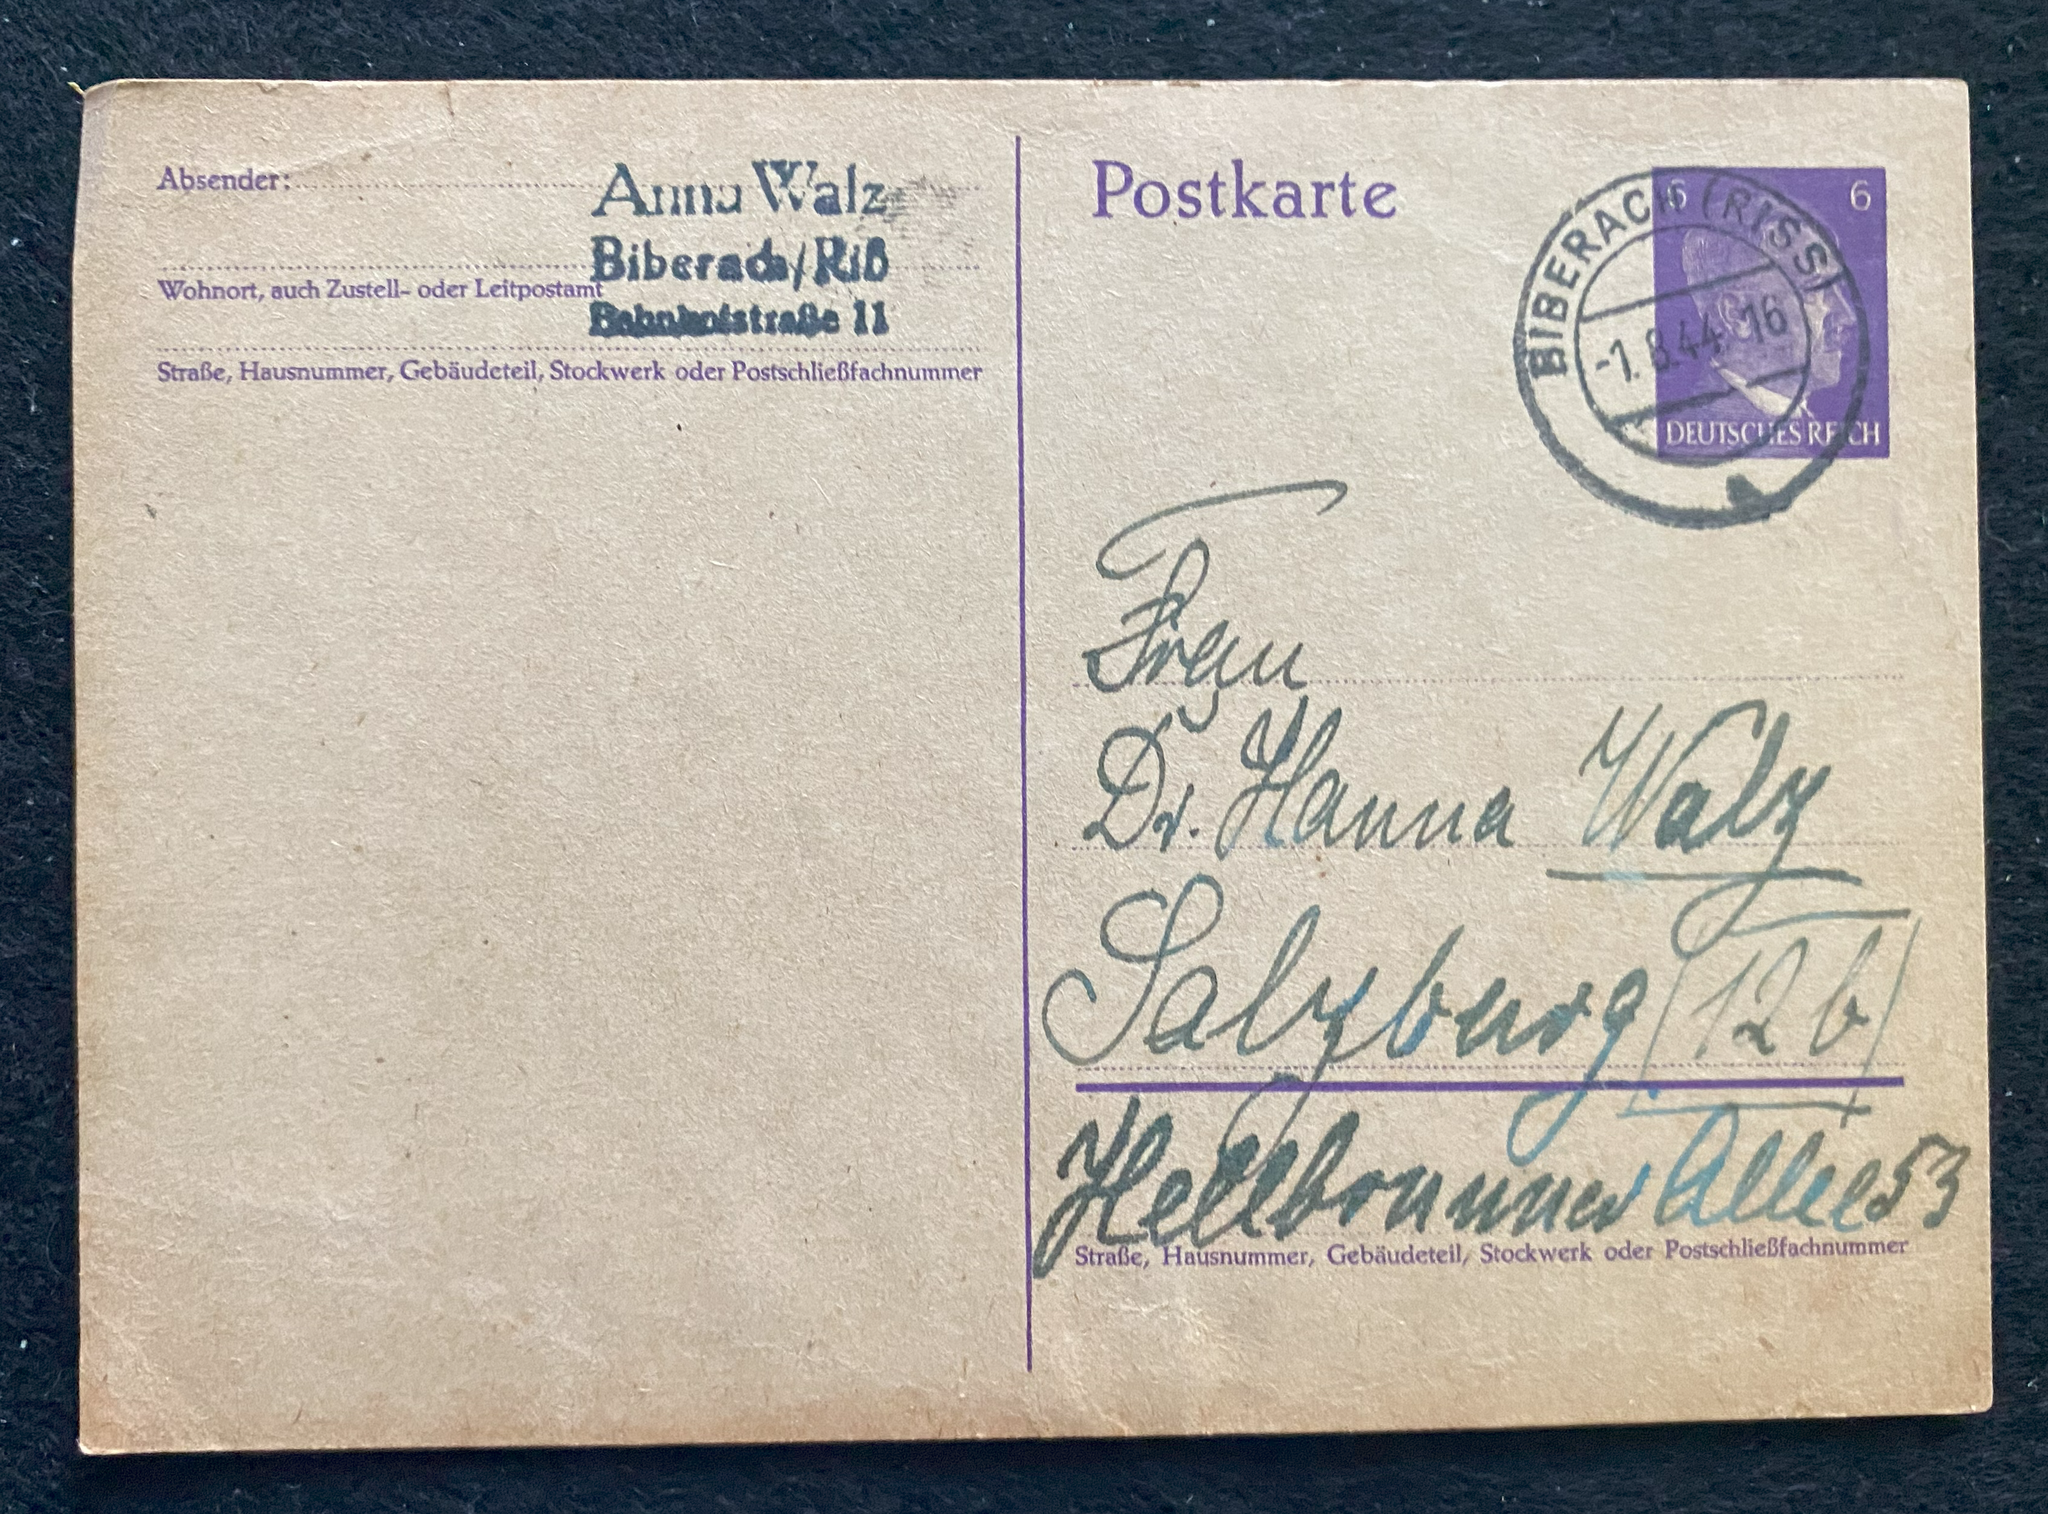 Absender:
Anna Walz
Biberach/Riß
Wohnort, auch Zustell- oder Leitpostamt
Bahnhofstraße 11
Straße, Hausnummer, Gebäudeteil, Stockwerk oder Postschließfachnummer
Postkarte
6 6
DEUTSCHES REICH
BIBERACH (RISS)
-1.8.44 16
a
Frau
Dr. Hanna Walz
Salzburg (12b)
Hellbrunner Allee 53
Straße, Hausnummer, Gebäudeteil, Stockwerk oder Postschließfachnummer